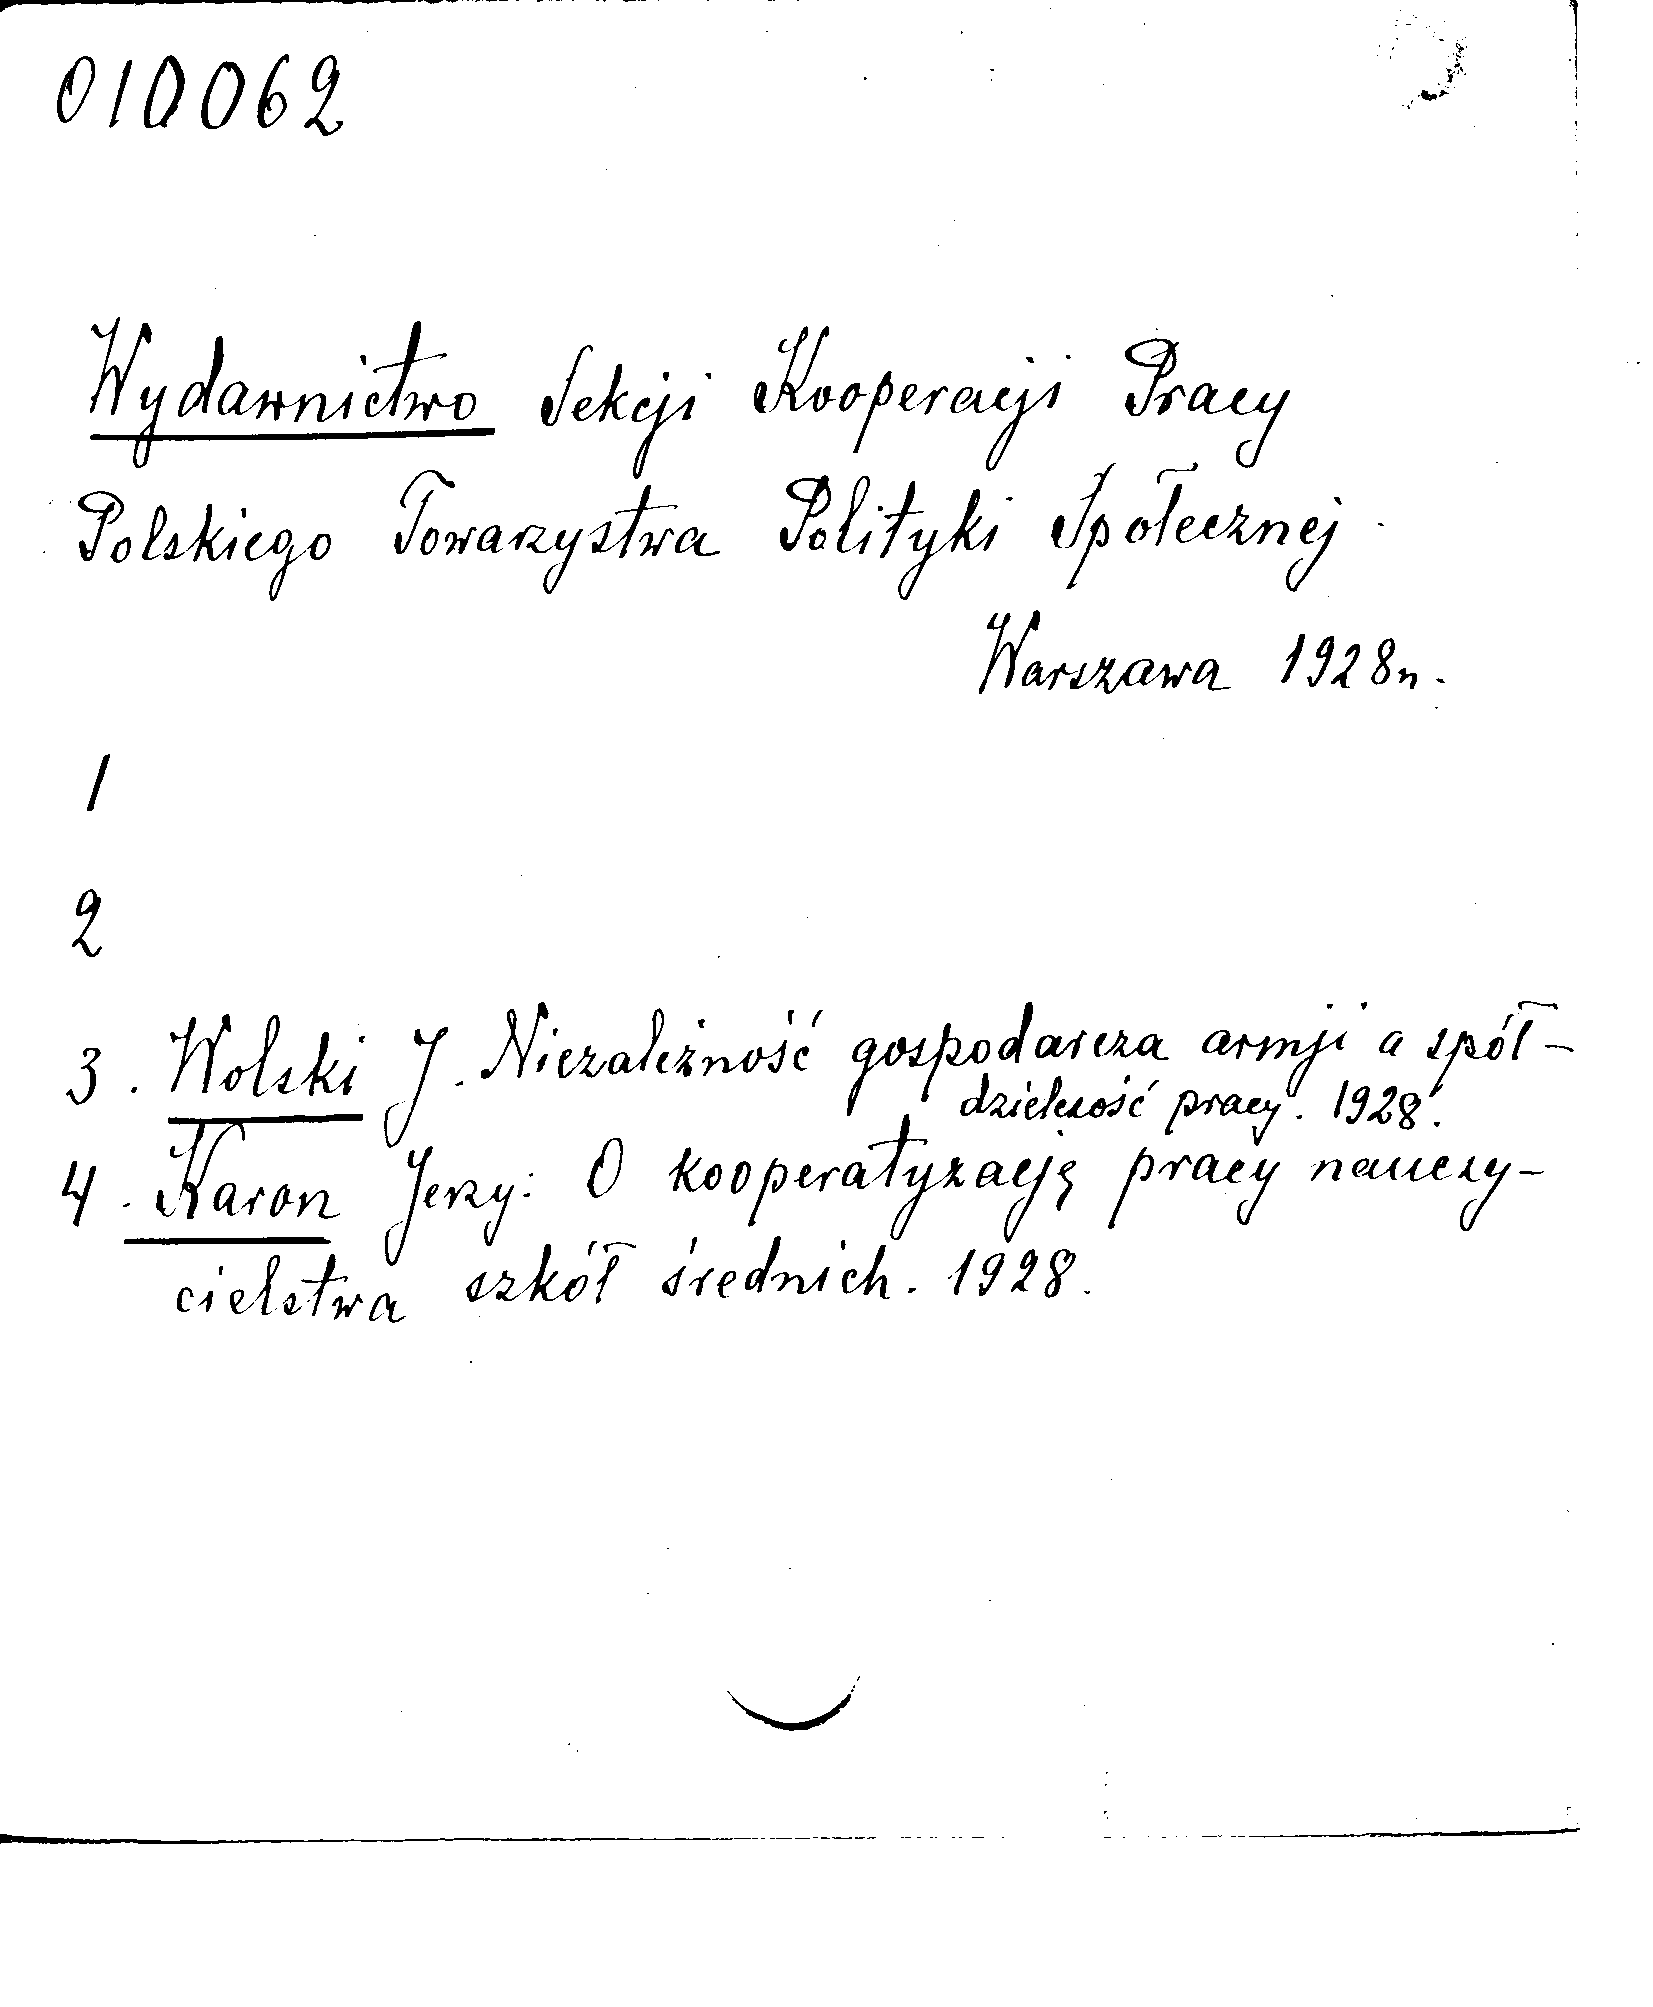 010062
Wydawnictwo Sekcji Kooperacji Pracy
Polskiego Towarzystwa Polityki Społecznej
Warszawa 1928 r.
1
2
3. Wolski J. Niezależność gospodarcza armji a spół-
dzielczość pracy. 1928.
4. Karon Jerzy: O kooperatyzację pracy nauczy-
cielstwa szkół średnich. 1928.